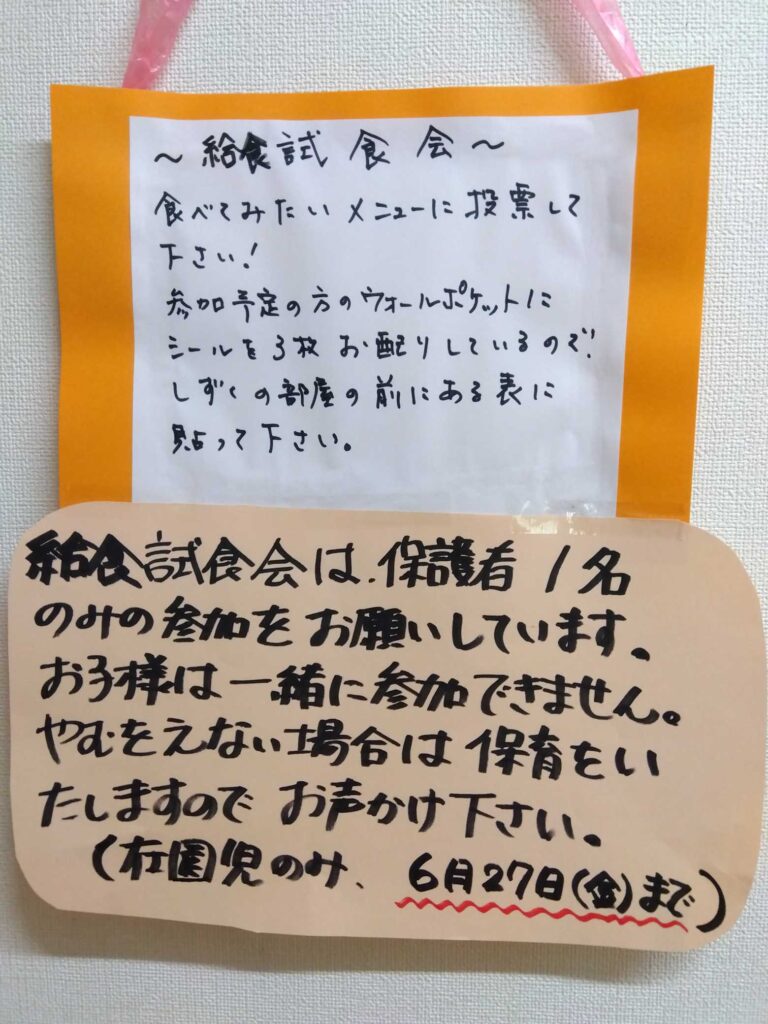 ～給食試食会～
食べてみたいメニューに投票して
下さい！
参加予定の方のウォールポケットに
シールを3枚お配りしているので、
しずくの部屋の前にある表に
貼って下さい。
給食試食会は、保護者1名
のみの参加をお願いしています。
お子様は一緒に参加できません。
やむをえない場合は保育をい
たしますのでお声かけ下さい。
(在園児のみ、6月27日(金)まで)